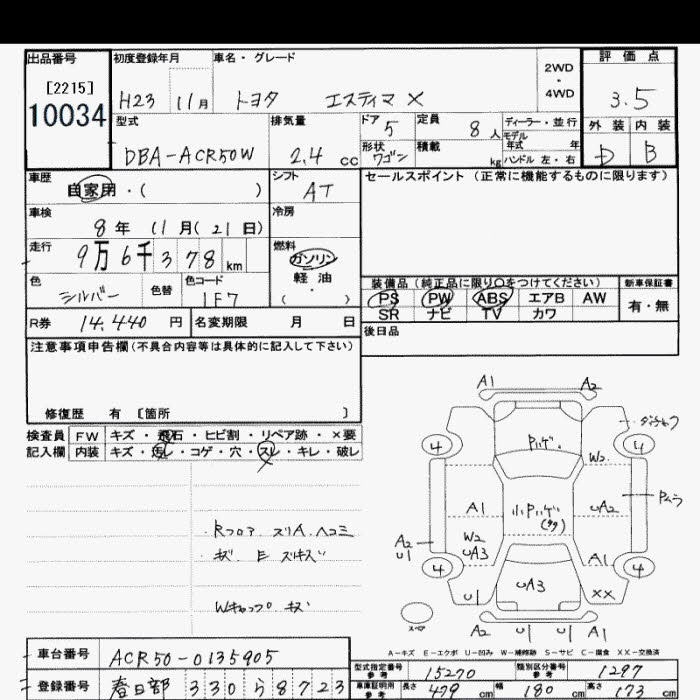 出品番号 初度登録年月 車名・グレード 2WD・4WD 評価点
[2215]
10034
H23 11月 トヨタ エスティマ X 3.5
型式 排気量 ドア 5 定員 8人 ディーラー・並行 外装 内装
モデル年式 年
DBA-ACR50W 2.4 cc 形状 ワゴン 積載 kg ハンドル 左・右 D B
車歴 自家用・( ) シフト AT セールスポイント(正常に機能するものに限ります)
車検 8年 11月(21日) 冷房
走行 9万6千378km 燃料 ガソリン
軽油
・( )
色 シルバー 色替 色コード 1F7
装備品(純正品に限り○をつけてください) 新車保証書
PS PW ABS エアB AW 有・無
SR ナビ TV カワ
R券 14,440円 名変期限 月 日 後日品
注意事項申告欄(不具合内容等は具体的に記入して下さい)
修復歴 有 [箇所 ]
検査員 FW キズ・飛石・ヒビ割・リペア跡・×要
記入欄 内装 キズ・汚レ・コゲ・穴・スレ・キレ・破レ
A1 A2
4 Pハゲ. 4
W2
A1 小Pハゲ UA2 Pムラ
A2 W2
U1 UA3 A1
4 UA3 4
U1 XX
スペア A2 U1 U1 A1
Rフロア スリA ヘコミ
キズ
Wキャップ キズ
A-キズ E-エクボ U-凹み W-補修跡 S-サビ C-腐食 XX-交換済
車台番号 ACR50-0135905
登録番号 春日部 330 ら 8723
型式指定番号 参考 15270 類別区分番号 参考 1297
車庫証明用 参考 長さ 479 cm 幅 180 cm 高さ 173 cm